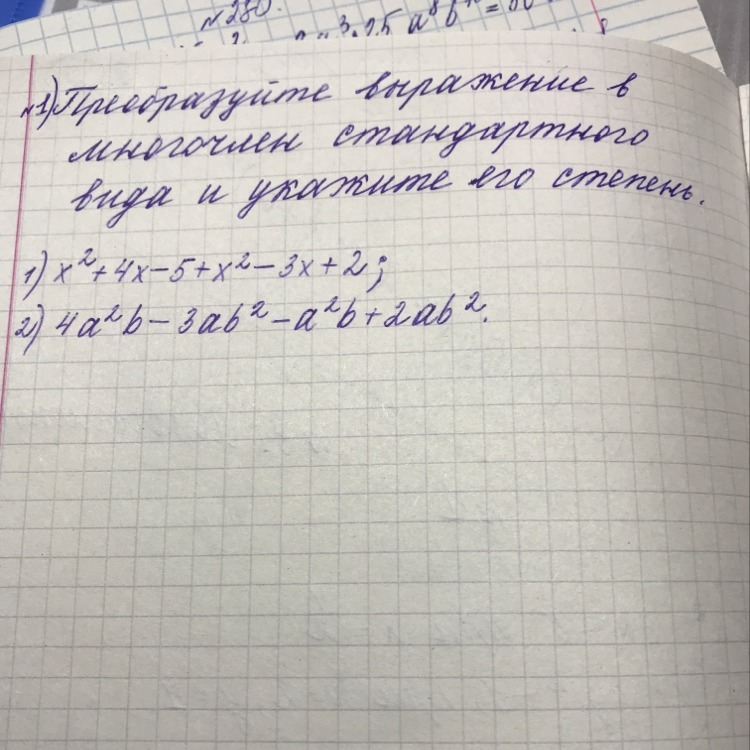 №280.
3.25 a⁸b
№1) Преобразуйте выражение в
многочлен стандартного
вида и укажите его степень.
1) x² + 4x - 5 + x² - 3x + 2;
2) 4a²b - 3ab² - a²b + 2ab².